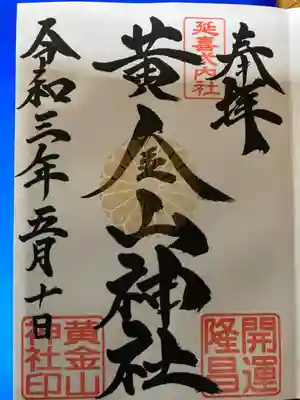 奉拝
延喜式内社
黄金山神社
令和三年五月十日
開運
隆昌
黄金山
神社印